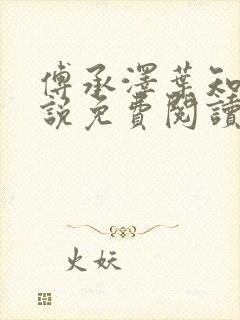 傅承澤葉知
說免費閱讀
火妖